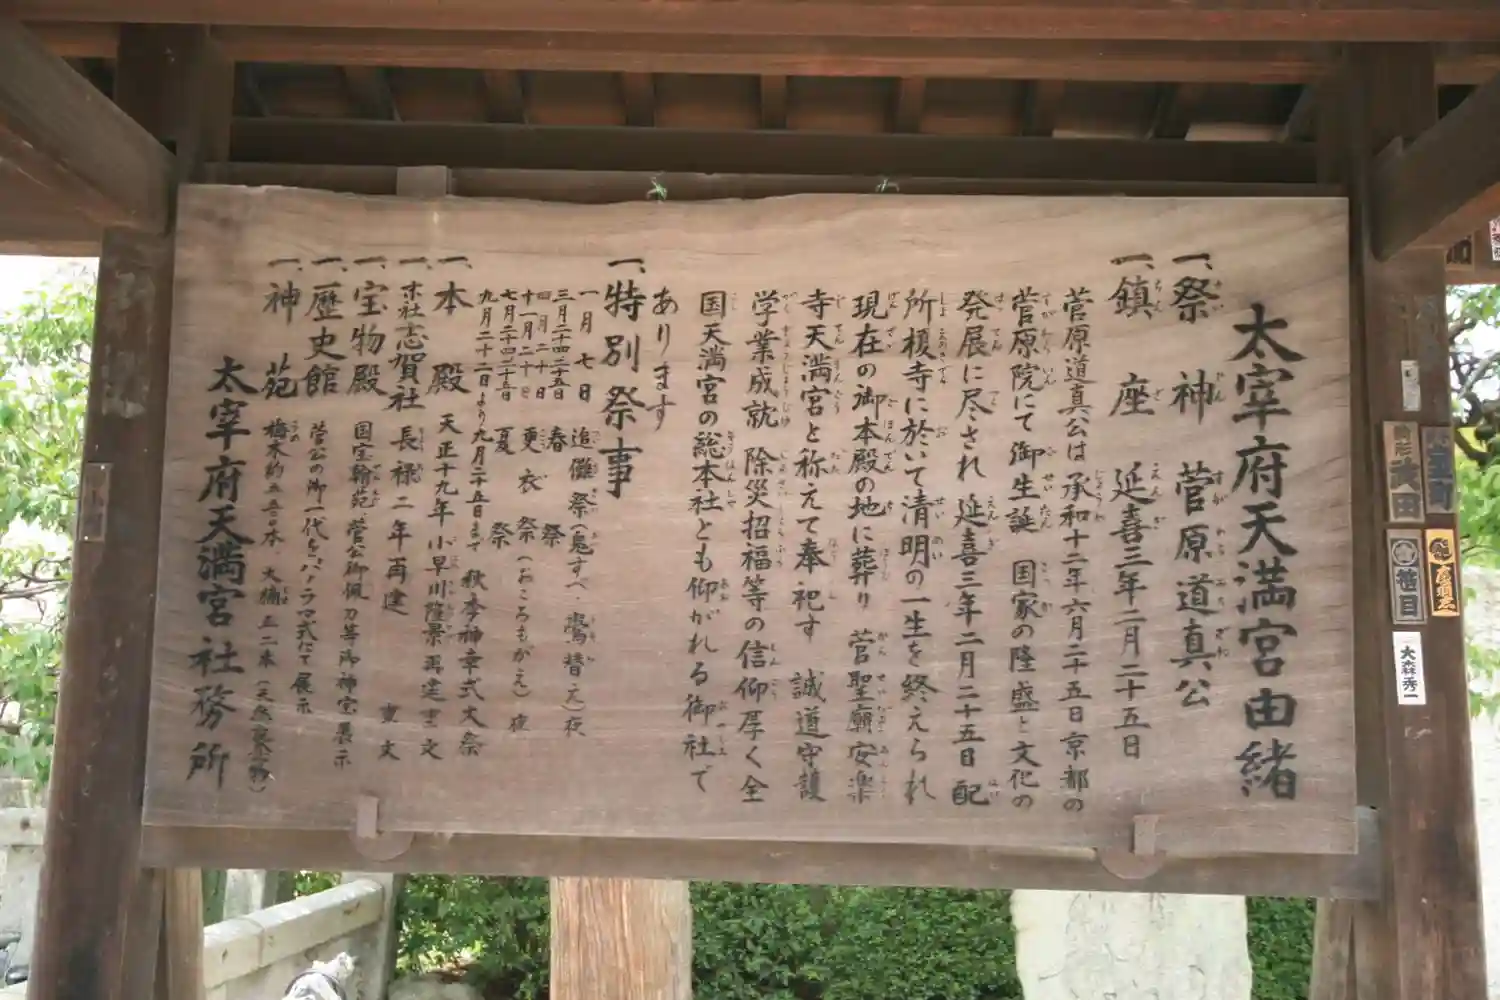 太宰府天満宮由緒
一、祭神 菅原道真公
一、鎮座 延喜三年二月二十五日
菅原道真公は承和十二年六月二十五日京都の
菅原院にて御生誕 国家の隆盛と文化の
発展に尽され 延喜三年二月二十五日 配
所榎寺に於いて清明の一生を終えられ
現在の御本殿の地に葬り 菅聖廟安楽
寺天満宮と称えて奉祀す 誠道守護
学業成就 除災招福等の信仰厚く全
国天満宮の総本社とも仰がれる御社で
あります
一、特別祭事
一月七日 追儺祭(鬼すべ 鷽替え)夜
三月二十四二十五日 春祭
四月二十日
十一月二十日 更衣祭(おころもがえ)夜
七月二十四二十五日 夏祭
九月二十二日より九月二十五日まで 秋季神幸式大祭
一、本殿 天正十九年 小早川隆景再建 重文
一、末社志賀社 長禄二年再建 重文
一、宝物殿 国宝翰苑 菅公御佩刀等御神宝展示
一、歴史館 菅公の御一代をパノラマ式にて展示
一、神苑 梅木約五五〇本、大樟五二本(天然記念物)
太宰府天満宮社務所
大森秀一